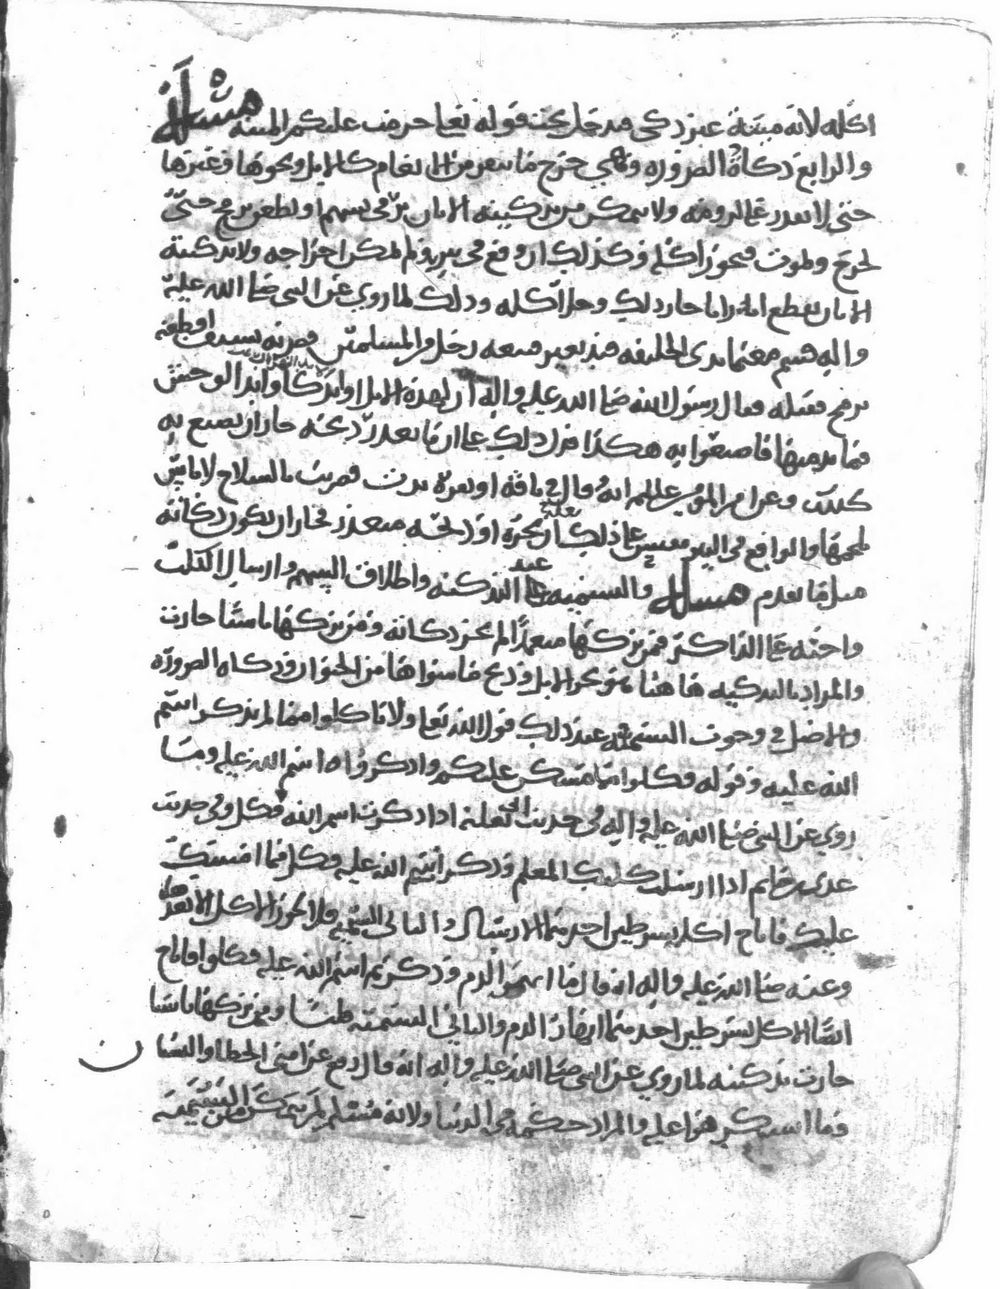 اكله لانه ميتة غير ذكي فدخل تحت قوله تعا حرمت عليكم الميتة مسئلة
والرابع ذكاة الضرورة وهي جرح ما ينفر من الانعام كالابل ونحوها وغيرها
حتى لا يقدر على الرد منه ولا يتمكن من تذكيته الا بان يرمى بسهم او يطعن برمح حتى
يجرح ويموت فيجوز اكله وكذلك ان وقع في بير ولم يمكن اخراجه ولا تذكيته
الا بان يقطع اما جاز ذلك وحل اكله وذلك لما روي عن النبي صلى الله عليه
واله قسم مغنما بذي الحليفة فند بعير فتبعه رجل من المسلمين فضربه بسيف او طعنه
برمح فقتله فقال رسول الله صلى الله عليه واله ان لهذه الابل اوابد كاوابد الوحش
فما ند منها فاصنعوا به هكذا فدل ذلك على ان ما تعذر ذبحه جاز ان يصنع به
كذلك وعن امير المؤمنين عليلم انه قال في ناقة او بقرة ندت فضربت بالسلاح لا باس
بلحمها والواقع في البير مقيس على ذلك لان نحره او ذبحه متعذر فجاز ان يكون ذكاته
مثل ما تقدم مسئلة والتسمية عند التذكية واطلاق السهم وارسال الكلب
واجبة على الذاكر فمن تركها متعمدا لم تجز ذكاته ومن تركها ناسيا جازت
والمراد بالتذكية هاهنا نحر الابل وذبح ما سواها من الحيوان وذكاة الضرورة
والاصل في وجوب التسمية عند ذلك قول الله تعا ولا تاكلوا مما لم يذكر اسم
الله عليه وقوله فكلوا مما امسكن عليكم واذكروا اسم الله عليه وبما
روي عن النبي صلى الله عليه واله في حديث ابي ثعلبة اذا ذكرت اسم الله فكل وفي حديث
عدي بن حاتم اذا ارسلت كلبك المعلم وذكرت اسم الله عليه فكل مما امسك
عليك فاباح اكله بشرطين احدهما الارسال والثاني التسمية فلا يجوز الاكل الا بعدهما
وعنه صلى الله عليه واله انه قال ما انهر الدم وذكرتم اسم الله عليه فكلوا فاباح
ايضا الاكل بشرطين احدهما انهار الدم والثاني التسمية قلنا ومن تركها ناسيا
جازت تذكيته لما روي عن النبي صلى الله عليه واله انه قال رفع عن امتي الخطا والنسيان
وما استكرهوا عليه والمراد حكمه في الدنيا ولانه مسلم لم يترك التسمية